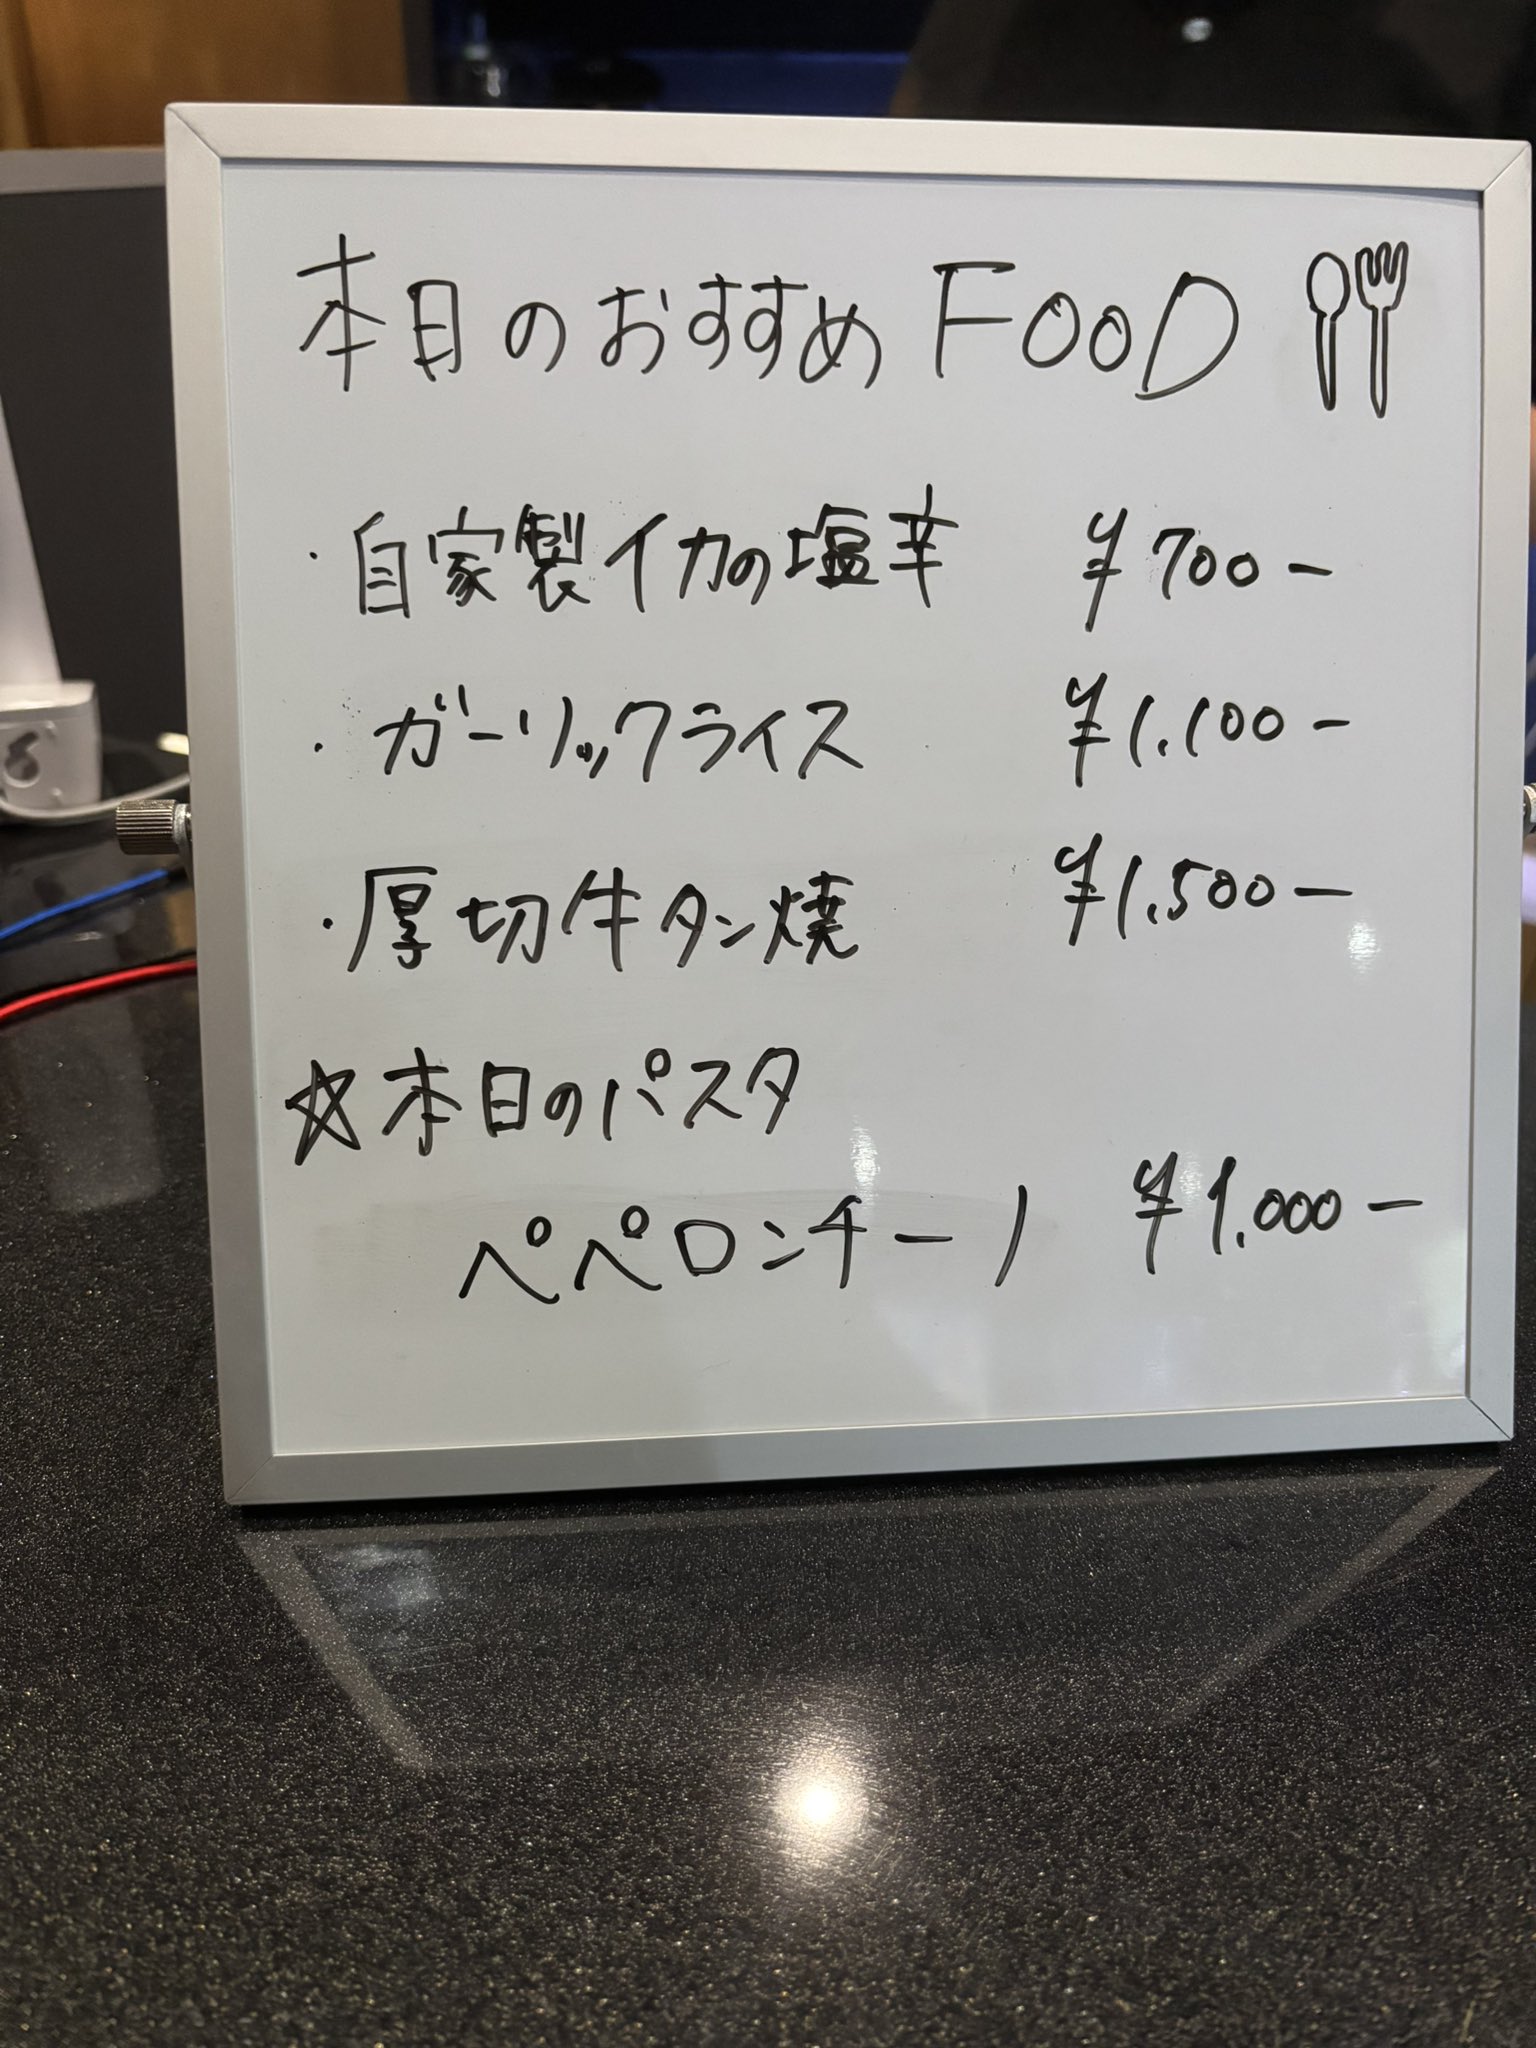 本日のおすすめ FOOD
・自家製イカの塩辛 ¥700-
・ガーリックライス ¥1,100-
・厚切牛タン焼 ¥1,500-
☆本日のパスタ
ペペロンチーノ ¥1,000-